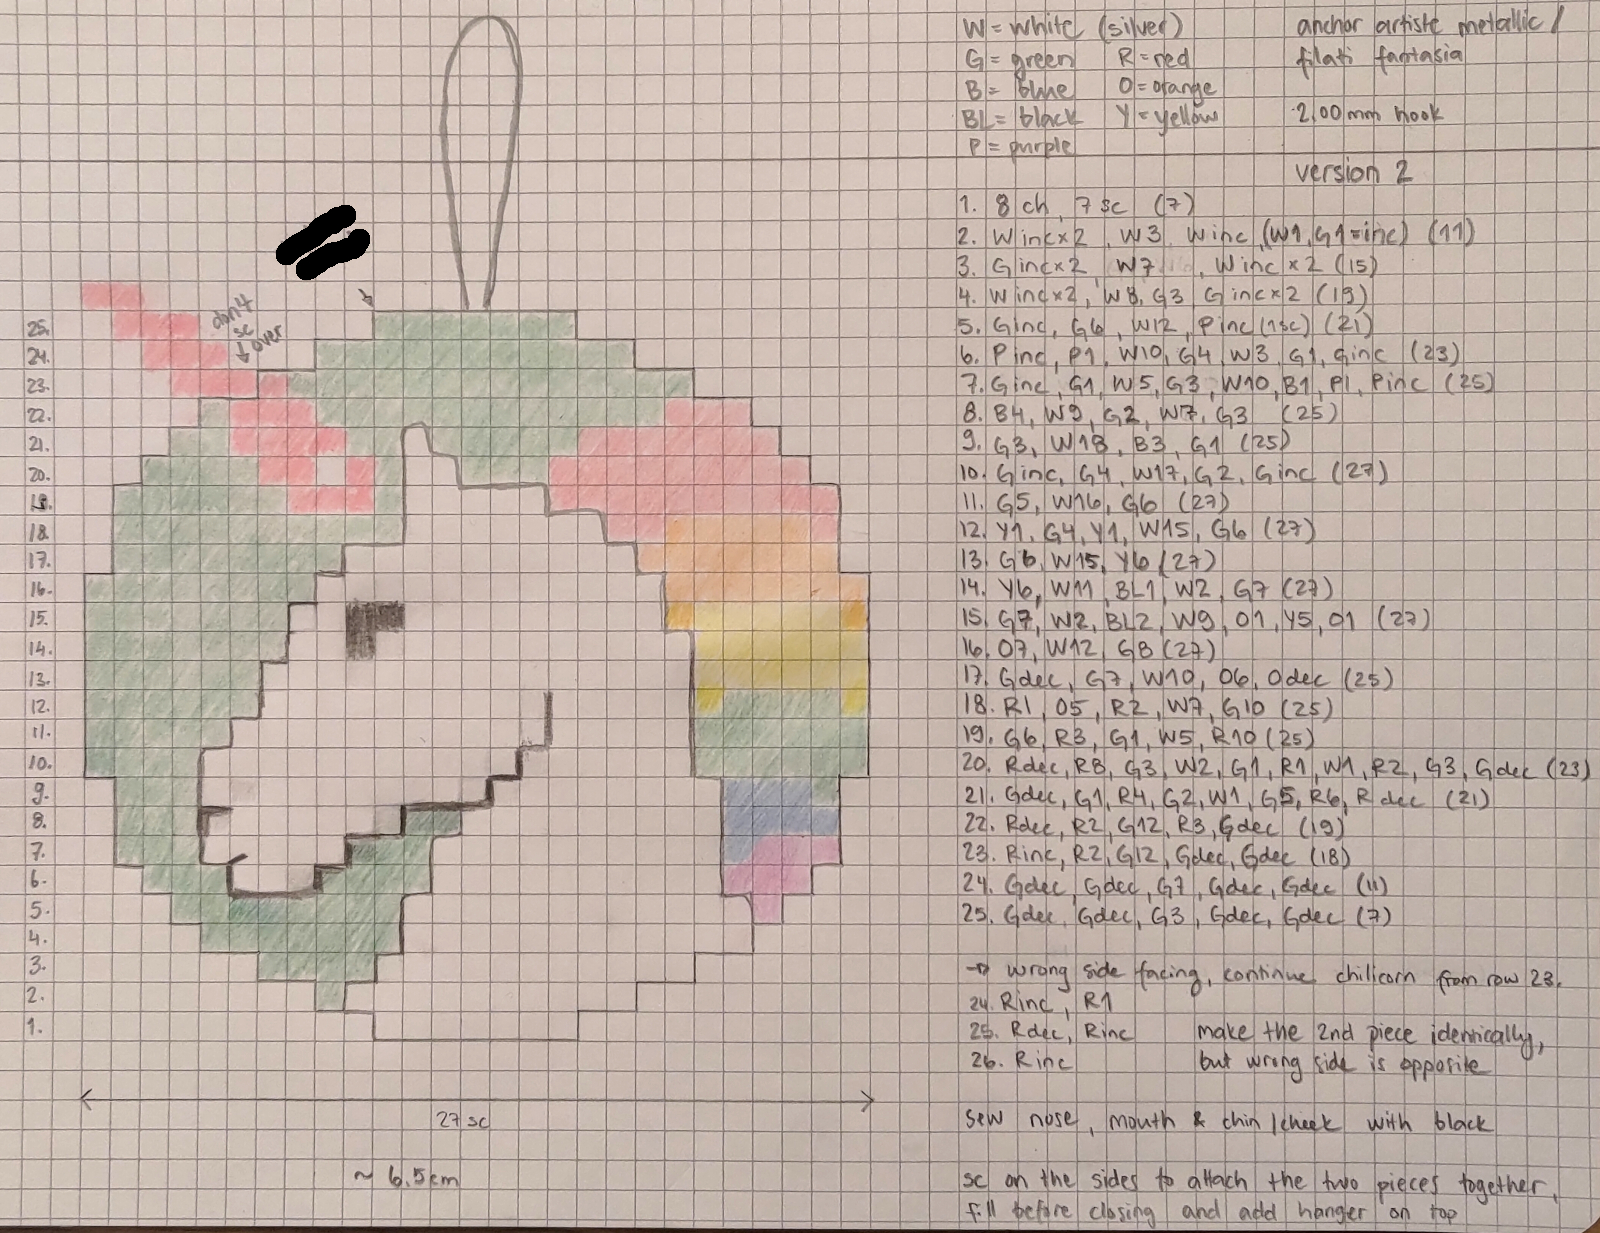 W = white (silver)
G = green R = red
B = blue O = orange
BL = black Y = yellow
P = purple
anchor artiste metallic /
filati fantasia
2,00mm hook
version 2
1. 8 ch, 7 sc (7)
2. W inc x 2, W3, W inc, (W1, G1 = inc) (11)
3. G inc x 2, W7, W inc x 2 (15)
4. W inc x 2, W8, G3, G inc x 2 (19)
5. G inc, G6, W12, P inc (1sc) (21)
6. P inc, P1, W10, G4, W3, G1, G inc (23)
7. G inc, G1, W5, G3, W10, B1, P1, P inc (25)
8. B4, W9, G2, W7, G3 (25)
9. G3, W18, B3, G1 (25)
10. G inc, G4, W17, G2, G inc (27)
11. G5, W16, G6 (27)
12. Y1, G4, Y1, W15, G6 (27)
13. G6, W15, Y6 (27)
14. Y6, W11, BL1, W2, G7 (27)
15. G7, W2, BL2, W9, O1, Y5, O1 (27)
16. O7, W12, G8 (27)
17. Gdec, G7, W10, O6, Odec (25)
18. R1, O5, R2, W7, G10 (25)
19. G6, R3, G1, W5, R10 (25)
20. Rdec, R8, G3, W2, G1, R1, W1, R2, G3, Gdec (23)
21. Gdec, G1, R4, G2, W1, G5, R6, R dec (21)
22. Rdec, R2, G12, R3, Gdec (19)
23. Rinc, R2, G12, Gdec, Gdec (18)
24. Gdec, Gdec, G7, Gdec, Gdec (11)
25. Gdec, Gdec, G3, Gdec, Gdec (7)
→ wrong side facing, continue chilicorn from row 23.
24. Rinc, R1
25. Rdec, Rinc
26. Rinc
make the 2nd piece identically,
but wrong side is opposite
sew nose, mouth & chin / cheek with black
sc on the sides to attach the two pieces together,
fill before closing and add hanger on top
don't
sc
↓ over
25.
24.
23.
22.
21.
20.
19.
18.
17.
16.
15.
14.
13.
12.
11.
10.
9.
8.
7.
6.
5.
4.
3.
2.
1.
27 sc
~ 6,5cm